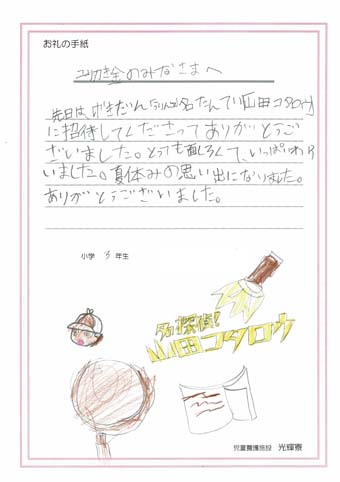 お礼の手紙
基金のみなさまへ
先日は、げきだん 名たんてい山田コタロウ
に招待してくださってありがとうご
ざいました。とても面しろくて、いっぱいわら
いました。夏休みの思い出になりました。
ありがとうございました。
小学 3 年生
名探偵!
山田コタロウ
児童養護施設 光輝寮